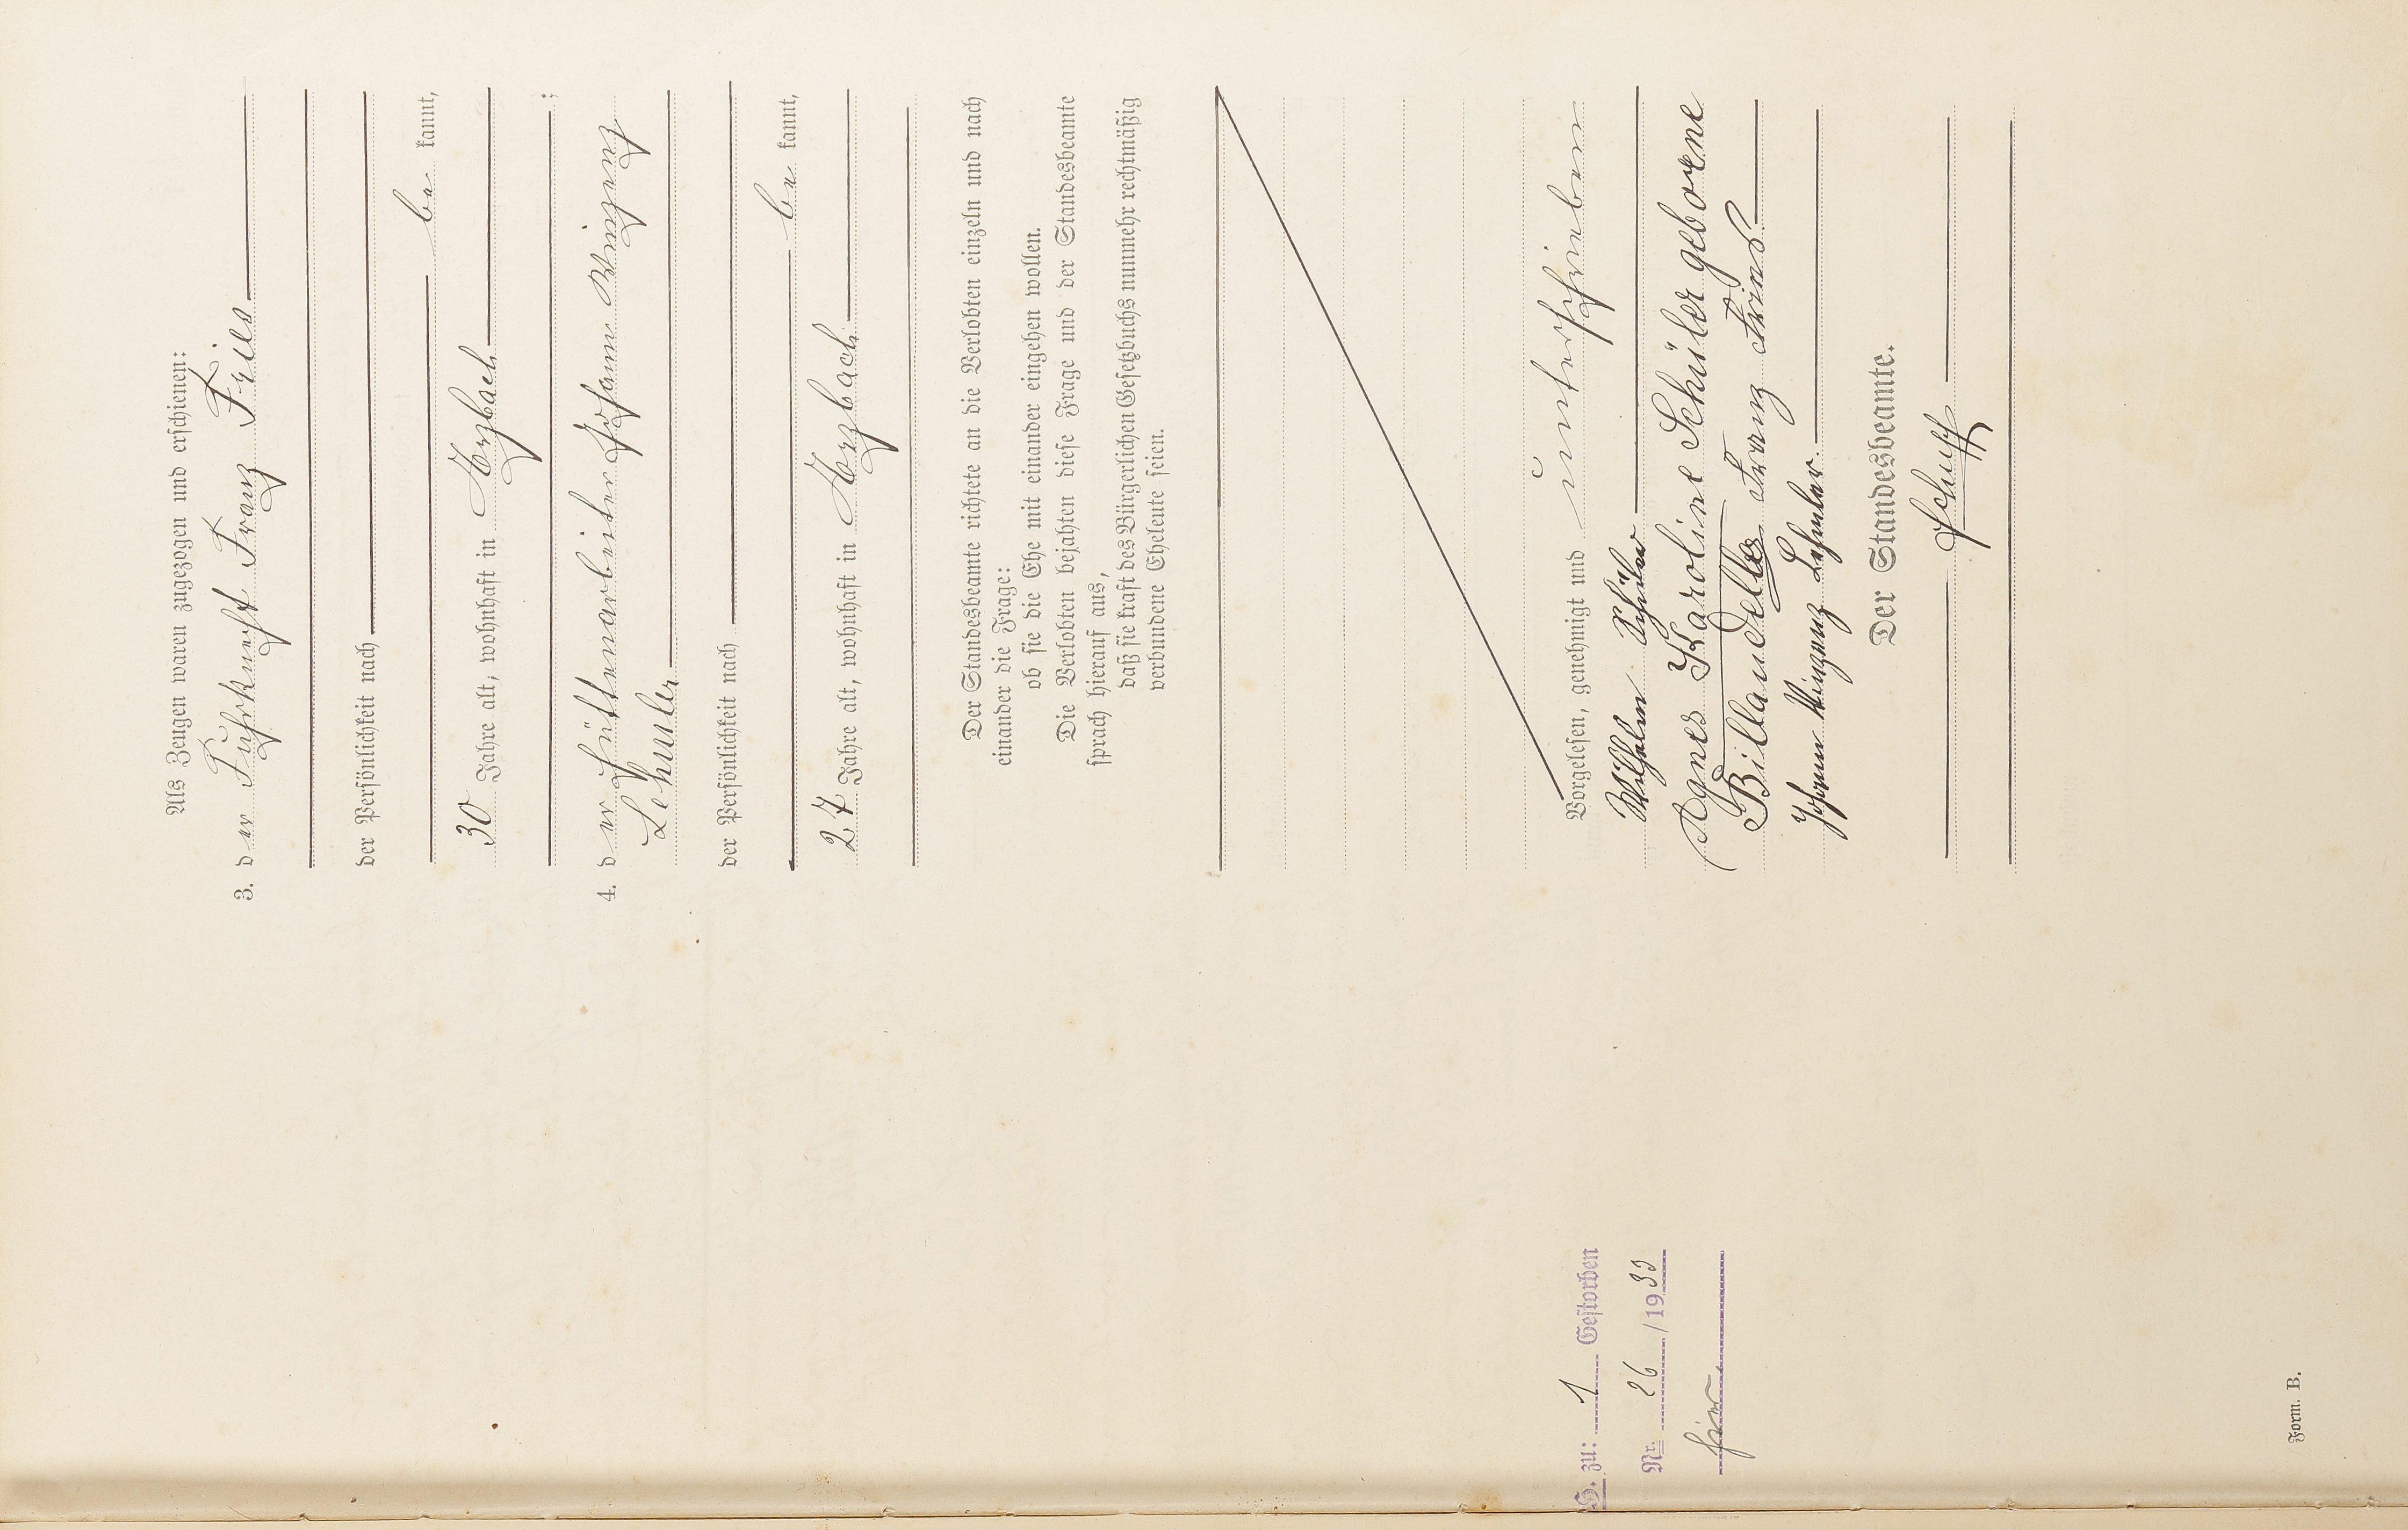 Als Zeugen waren zugezogen und erschienen:
3. der Fuhrknecht Franz Fries
der Persönlichkeit nach
be kannt,
30 Jahre alt, wohnhaft in Hozbach
;
4. der Hüttenarbeiter Johann Vinzenz
Lehnler
der Persönlichkeit nach
be kannt,
27 Jahre alt, wohnhaft in Hozbach
Der Standesbeamte richtete an die Verlobten einzeln und nach
einander die Frage:
ob sie die Ehe mit einander eingehen wollen.
Die Verlobten bejahten diese Frage und der Standesbeamte
sprach hierauf aus,
daß sie kraft des Bürgerlichen Gesetzbuchs nunmehr rechtmäßig
verbundene Eheleute seien.
Vorgelesen, genehmigt und unterschrieben
Wilhelm Schüler
Agnes Karoline Schüler geborene
Billaudelle Franz Fries
Johann Vinzenz Lehnler
Der Standesbeamte.
H. zu: 1 Gestorben
Nr. 26 / 1933
hier
Form. B.